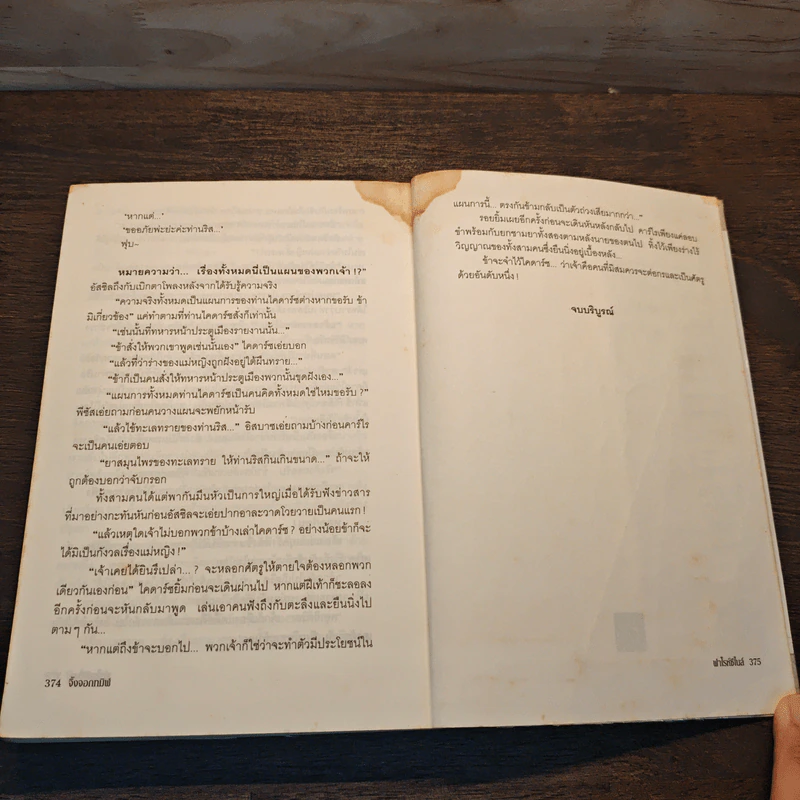 'หากแต่...'
'ขออภัยพ่ะย่ะค่ะท่านริส...'
ฟุบ–
หมายความว่า... เรื่องทั้งหมดนี่เป็นแผนของพวกเจ้า !?"
อัสซิลถึงกับเบิกตาโพลงหลังจากได้รับรู้ความจริง
"ความจริงทั้งหมดเป็นแผนการของท่านไคดาร์ซต่างหากขอรับ ข้า
มิเกี่ยวข้อง" แค่ทำตามที่ท่านไคดาร์ซสั่งก็เท่านั้น
"เช่นนั้นที่ทหารหน้าประตูเมืองรายงานนั้น..."
"ข้าสั่งให้พวกเขาพูดเช่นนั้นเอง" ไคดาร์ซเอ่ยบอก
"แล้วที่ว่าร่างของแม่หญิงถูกฝังอยู่ใต้ผืนทราย..."
"ข้าก็เป็นคนสั่งให้ทหารหน้าประตูเมืองพวกนั้นขุดฝังเอง..."
"แผนการทั้งหมดท่านไคดาร์ซเป็นคนคิดทั้งหมดใช่ไหมขอรับ ?"
พีซัสเอ่ยถามก่อนคนวางแผนจะพยักหน้ารับ
"แล้วไข้ทะเลทรายของท่านริส..." อิสบาซเอ่ยถามบ้างก่อนคาร์โร
จะเป็นคนเอ่ยตอบ
"ยาสมุนไพรของทะเลทราย ให้ท่านริสกินเกินขนาด..." ถ้าจะให้
ถูกต้องบอกว่าจับกรอก
ทั้งสามคนได้แต่พากันมึนหัวเป็นการใหญ่เมื่อได้รับฟังข่าวสาร
ที่มาอย่างกะทันหันก่อนอัสซิลจะเอ่ยปากอาละวาดโวยวายเป็นคนแรก !
"แล้วเหตุใดเจ้าไม่บอกพวกข้าบ้างเล่าไคดาร์ซ ? อย่างน้อยข้าก็จะ
ได้มิเป็นกังวลเรื่องแม่หญิง !"
"เจ้าเคยได้ยินรึเปล่า... ? จะหลอกศัตรูให้ตายใจต้องหลอกพวก
เดียวกันเองก่อน" ไคดาร์ซยิ้มก่อนจะเดินผ่านไป หากแต่ฝีเท้าก็ชะลอลง
อีกครั้งก่อนจะหันกลับมาพูด เล่นเอาคนฟังถึงกับตะลึงและยืนนิ่งไป
ตามๆ กัน...
"หากแต่ถึงข้าจะบอกไป... พวกเจ้าก็ใช่ว่าจะทำตัวมีประโยชน์ใน
374 จิ้งจอกทมิฬ
แผนการนี้... ตรงกันข้ามกลับเป็นตัวถ่วงเสียมากกว่า..."
รอยยิ้มเผยอีกครั้งก่อนจะเดินหันหลังกลับไป คาร์โรเพียงแค่ลอบ
ขำพร้อมกับยกชามยาทั้งสองตามหลังนายของตนไป ทิ้งไว้เพียงร่างไร้
วิญญาณของทั้งสามคนซึ่งยืนนิ่งอยู่เบื้องหลัง...
ข้าจะจำไว้ไคดาร์ซ... ว่าเจ้าคือคนที่มิสมควรจะต่อกรและเป็นศัตรู
ด้วยอันดับหนึ่ง !
จบบริบูรณ์
375